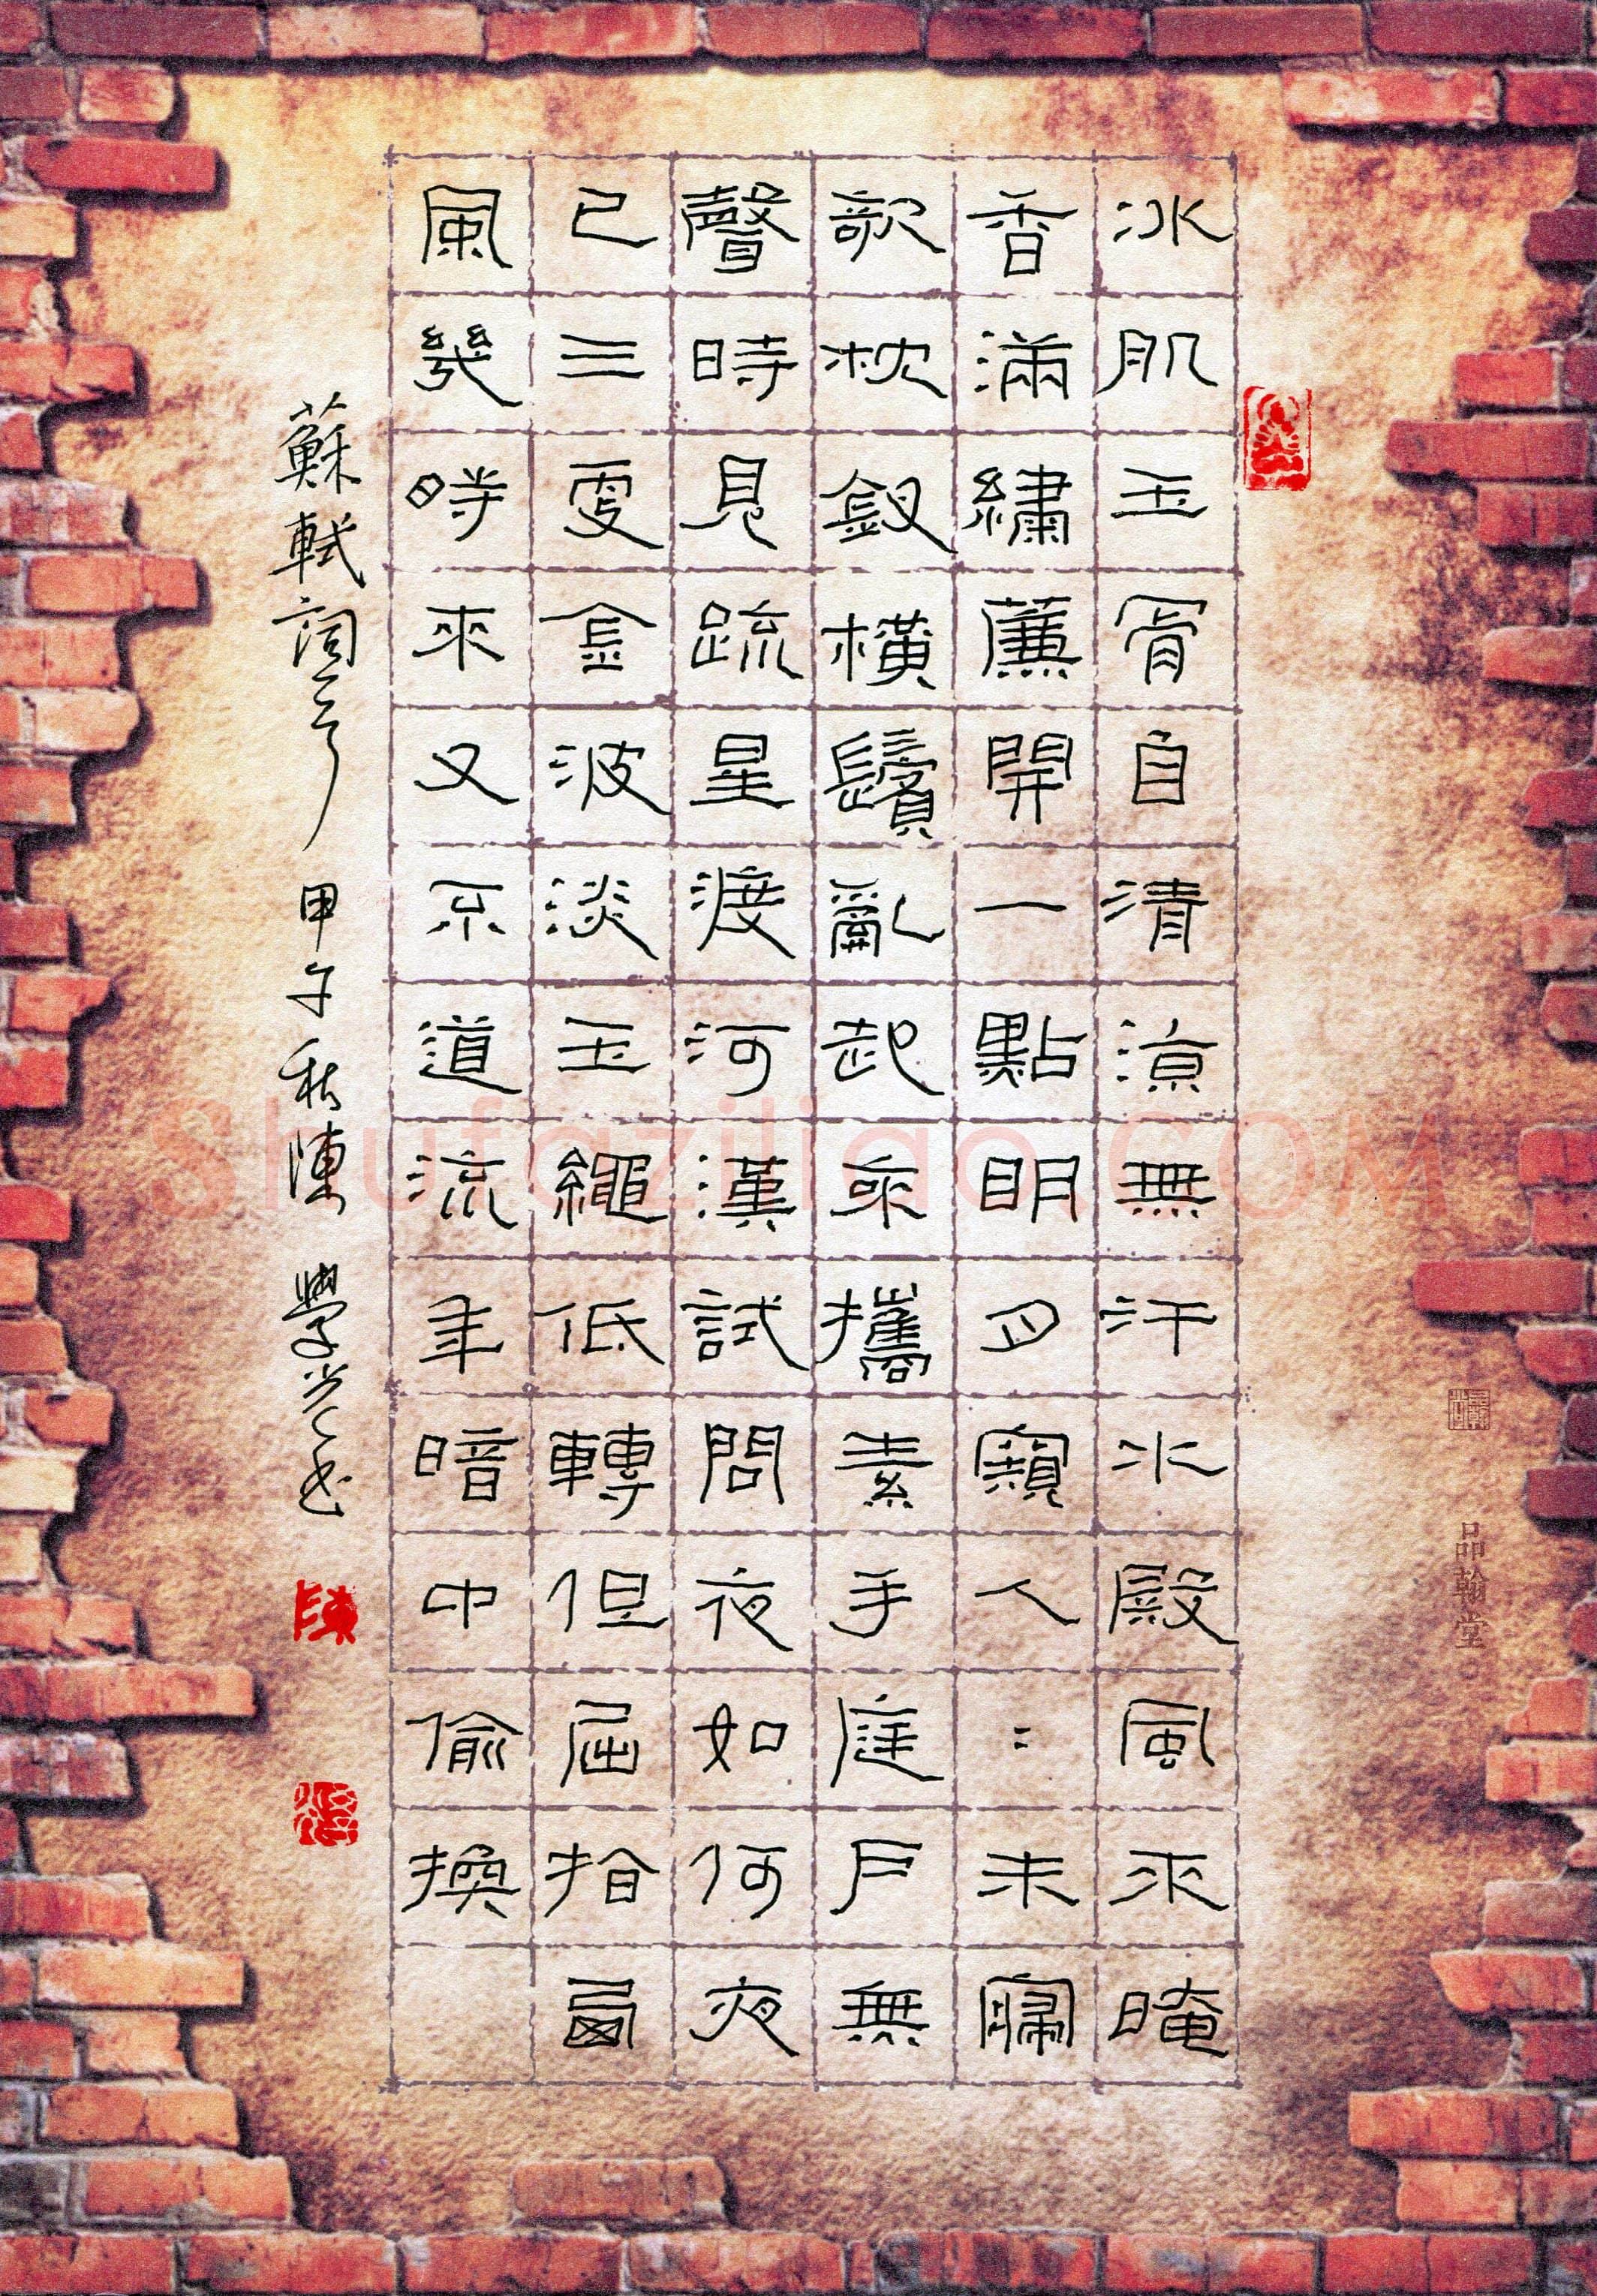 冰肌玉骨自清涼無汗水殿風來晻
香滿繡簾開一點明月窺人：未寢
欹枕釵橫鬢亂起來攜素手庭戶無
聲時見疏星渡河漢試問夜如何夜
已三更金波淡玉繩低轉但屈指西
風幾時來又不道流年暗中偷換
蘇軾詞 甲午秋陳學書
陳
品翰堂
shufaziliao.COM